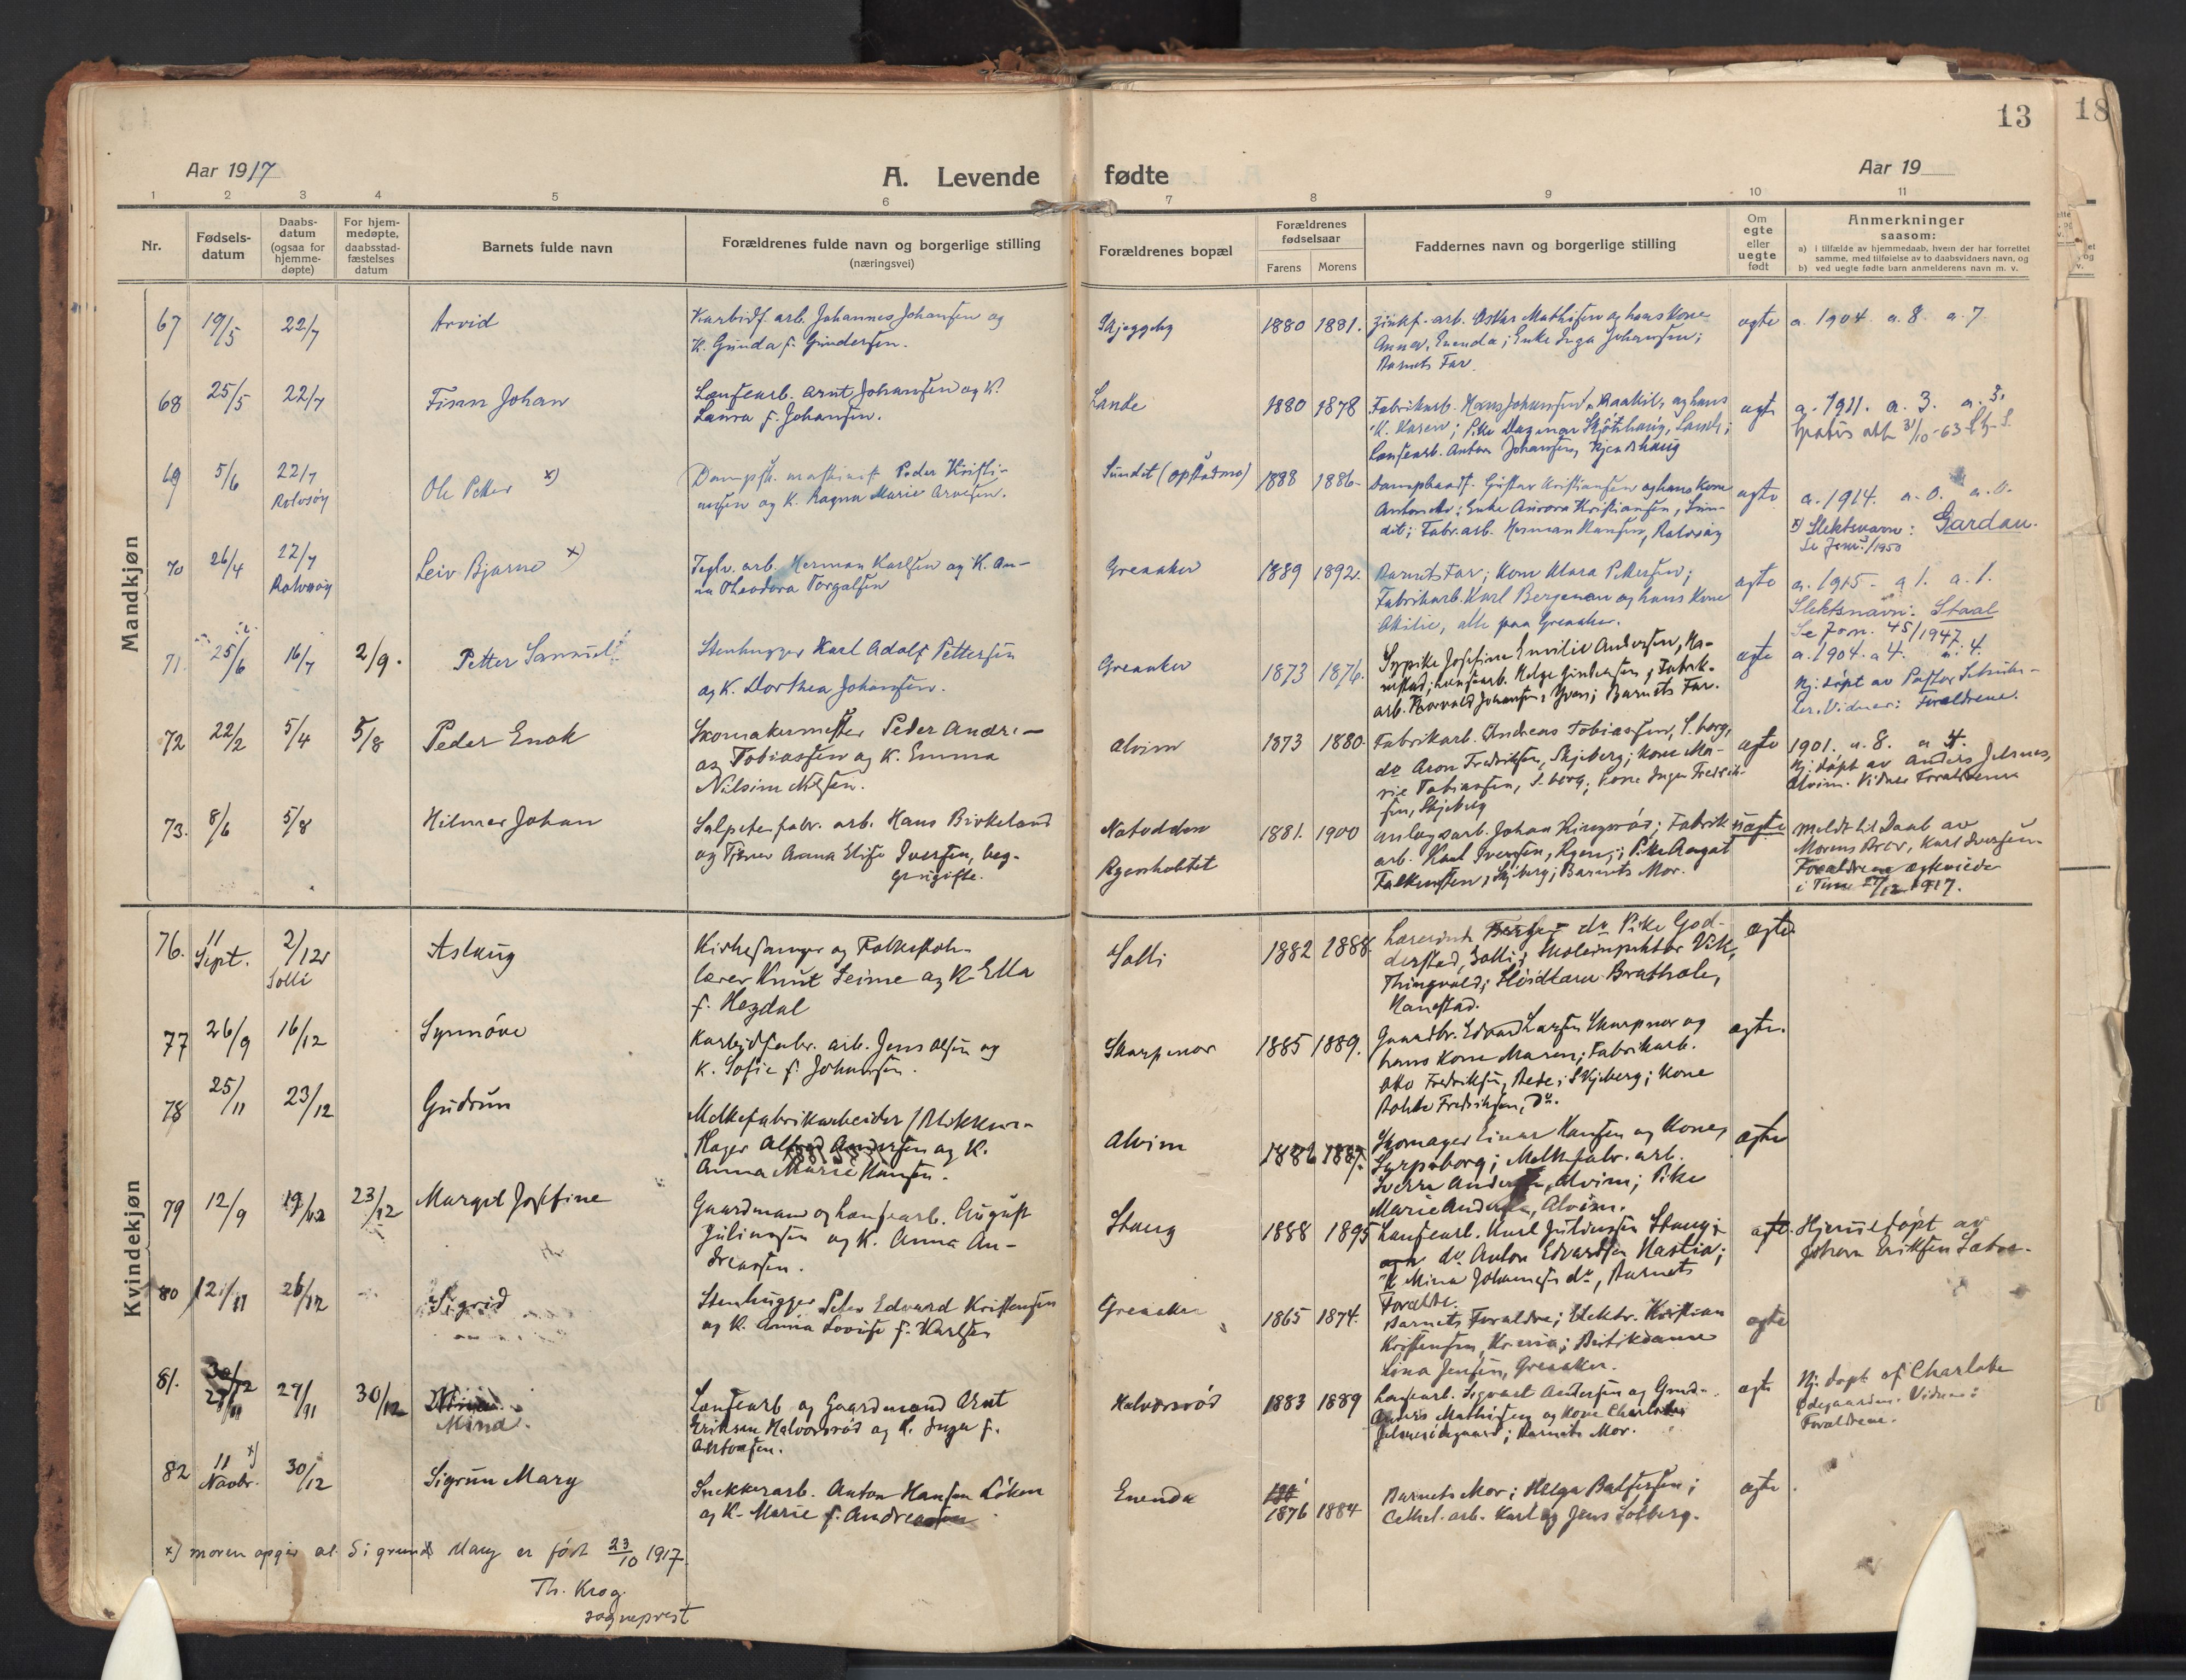 13
18
Aar 1917
A. Levende fødte
Aar 19
1 2 3 4 5 6 7 8 9 10 11
Nr.
Fødsels-
datum
Daabs-
datum
(ogsaa for
hjemme-
døpte)
For hjem-
medøpte,
daabsstad-
fæstelses
datum
Barnets fulde navn
Forældrenes fulde navn og borgerlige stilling
(næringsvei)
Forældrenes bopæl
Forældrenes
fødselsaar
Farens Morens
Faddernes navn og borgerlige stilling
Om
egte
eller
uegte
født
Anmerkninger
saasom:
a) i tilfælde av hjemmedaab, hvem der har forrettet
samme, med tilføielse av to daabsvidners navn, og
b) ved uegte fødte barn anmelderens navn m. v.
Mandkjøn
67 19/5 22/7 Arvid
Karbidf. arb. Johannes Johansen og
K. Gunda f. Gundersen.
Skjeggeby 1880 1881.
Zinkf. arb. Oskar Mathisen og hans Kone
Anna, Enenda; Enke Inga Johansen;
Barnets Far.
egte a. 1904. a. 8. a. 7
68 25/5 22/7 Finn Johan
Lænsearb. Arnt Johansen og K.
Laura f. Johansen.
Lande 1880 1878
Fabrikarb. Hans Johansen, og hans
K. Karen; Pike Dagmar Skjøthaug, Lande;
Lænsearb. Anton Johansen,
egte a. 1911. a. 3. a. 3.
69 5/6 22/7 Rolvsøy Ole Petter x)
Dampsk. maskinist Peder Kristi-
ansen og K. Ragna Marie Arvesen.
Sundet (Opstadmo) 1888 1886
Gustav Kristiansen og hans Kone
Enke Aurora Kristiansen, Sun-
det; Fabr. arb. Herman Hansen, Rolvsøy
egte a. 1914. a. 0. a. 0.
x) Slektsnavn: Gardau.
70 26/4 22/7 Rolvsøy Leiv Bjarne x)
Teglv. arb. Herman Karlsen og K. An-
na Theodora Torgalsen
Greaaker 1889 1892.
Barnets Far; Kone Klara Pettersen;
Fabrikarb. Karl Bergeman og hans Kone
Otilie, alle paa Greaaker.
egte a. 1915 - a 1. a. 1.
Slektsnavn: Staal
Se Jorn. 45/1947.
71. 25/6 16/7 2/9. Petter Samuel
Stenhugger Karl Adolf Pettersen
og K. Dorthea Johansen.
Greaaker 1873 1876.
Sypike Josefine Emilie Andersen, Ha-
Helge Gundersen, Fabrik-
arb. Thorvald Johansen, Yven; Barnets Far.
egte a. 1904. a 4. a. 4.
Hj. døpt av Pastor
Vidner: Forældrene.
72 22/2 5/4 5/8 Peder Enok
Skomakermester Peder Andre-
as Tobiassen og K. Emma
Nilsine Nilsen.
Alvim 1873 1880
Fabrikarb. Andreas Tobiassen, S.borg,
do Aron Fredriksen, Skjeberg; Kone Ma-
rie Tobiassen, S.borg; Kone Inga Fredrik-
sen, Skjeberg
egte 1901. a. 8. a 4.
Hj. døpt av Anders Jelsnes,
Alvim. Vidner Forældrene
73. 8/6 5/8 Hilmar Johan
Salpeterfabr. arb. Hans Birkeland
og Tjener Anna Elise Iversen, beg-
ge ugifte.
Notodden
Ryenholtet
1881. 1900
Anlægsarb. Johan Ringsrød; Fabrik-
arb. Karl Iversen, Ryen; Pike Aagot
Falkensten, Skjeberg; Barnets Mor.
uegte
Meldt til Daab av
Morens Bror, Karl Iversen
Forældrene egteviede
i Tune 27/12 1917.
Kvindekjøn
76. 11 Sept. 2/12 Solli Aslaug
Kirkesanger og Folkeskole-
lærer Knut Seime og K. Ella
f. Hegdal
Solli 1882 1888
Lærerinde do Pike God-
derstad, Solli; Skoleinspektør Vik,
Thingvold;
egte
77 26/9 16/12 Synnøve
Karbidfabr. arb. Jens Olsen og
K. Sofie f. Johansen.
Skarpenor 1885 1889.
Gaardbr. Edvard Larsen Skarpnor og
hans Kone Maren; Fabrikarb.
Otto Fredriksen, Bede i Skjeberg; Kone
Bolette Fredriksen, do.
egte.
78 25/11 23/12 Gudrun
Melkefabrikarbeider / Blikken-
slager Alfred Andersen og K.
Anna Marie Hansen.
Alvim 1886 1887.
Skomager Einar Hansen og Kone,
Sarpsborg; Melkefabr. arb.
Sverre Andersen, Alvim; Pike
Marie Andersen, Alvim.
egte
79 12/9 19/12 23/12 Margit Josefine
Gaardmand og Lænsearb. August
Juliussen og K. Anna An-
dreassen.
Stang 1888 1895
Lænsearb. Karl Juliussen Stang;
do Anton Edvardsen Nastia;
K. Mina Johansen do, Barnets
Forældre.
egte. Hjemmedøpt av
Johan Eriksen
80 12/11 26/12 Sigrid
Stenhugger Peter Edvard Kristensen
og K. Anna Lovise f. Karlsen
Greaaker 1865 1874.
Barnets Forældre; Elektr. Kristian
Kristensen, Kr.ania; Butikdame
Lina Jensen, Greaaker.
egte
81. 27/11 29/11 30/12 Mina.
Lænsearb og Gaardmand Arnt
Eriksen Halvorsrød og K. Inga f.
Antonsen.
Halvorsrød 1883 1889
Lænsearb. Sigvart Andersen og
Anders Mathisen og Kone Charlotte
Barnets Mor.
egte Hj. døpt af Charlotte
Vidner:
Forældrene.
82 11 x) Novbr. 30/12 Sigrun Mary
Snekkerarb. Anton Hansen Løken
og K. Marie f. Andreassen
Enenda 1876 1884
Barnets Mor; Helga Baltersen;
Cellul. arb. Karl og Jens Solberg.
egte.
x) moren opgir at Sigrund Mary er født 23/10 1917.
Th. Krog
sogneprest